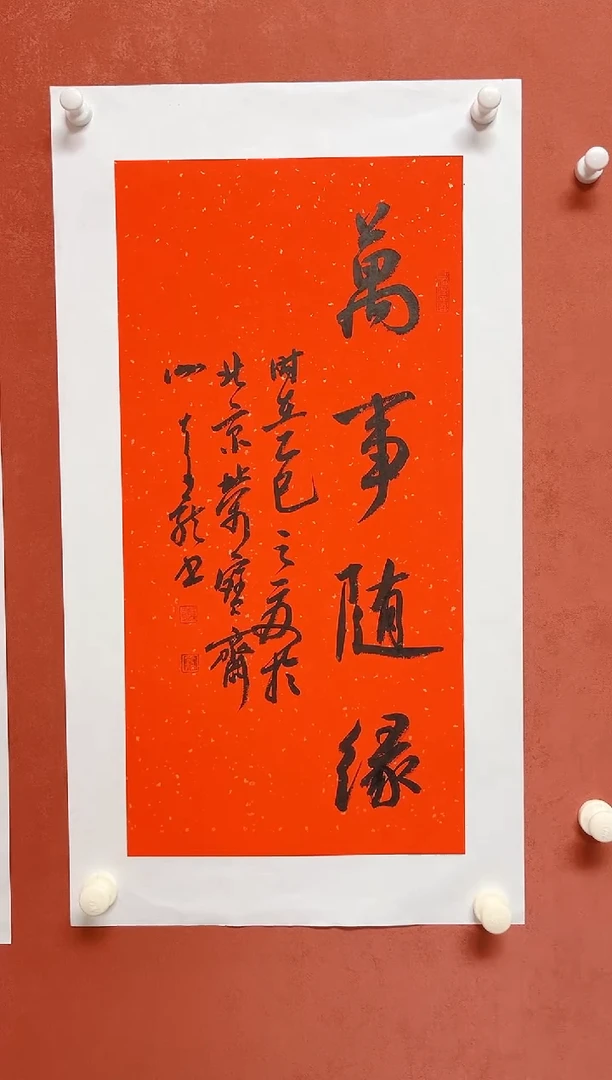 萬事隨緣
時在乙巳之夏於
北京榮寶齋